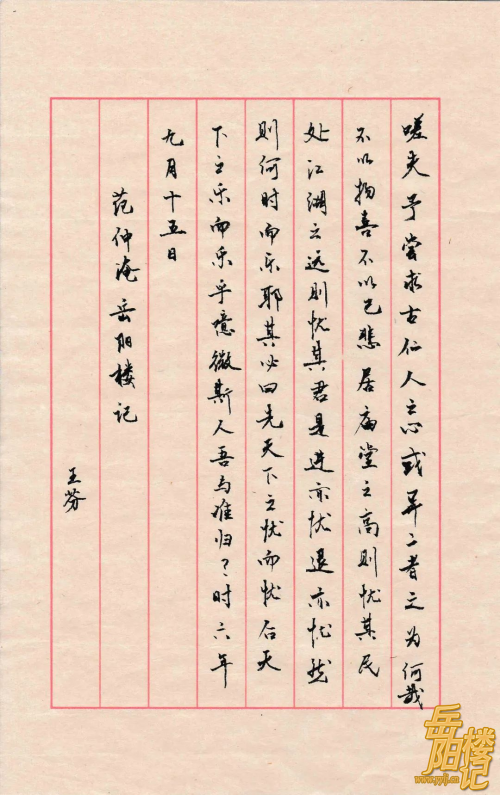 嗟夫予尝求古仁人之心或异二者之为何哉
不以物喜不以己悲居庙堂之高则忧其民
处江湖之远则忧其君是进亦忧退亦忧然
则何时而乐耶其必曰先天下之忧而忧后天
下之乐而乐乎噫微斯人吾与谁归？时六年
九月十五日
范仲淹岳阳楼记
王芬
岳阳楼记